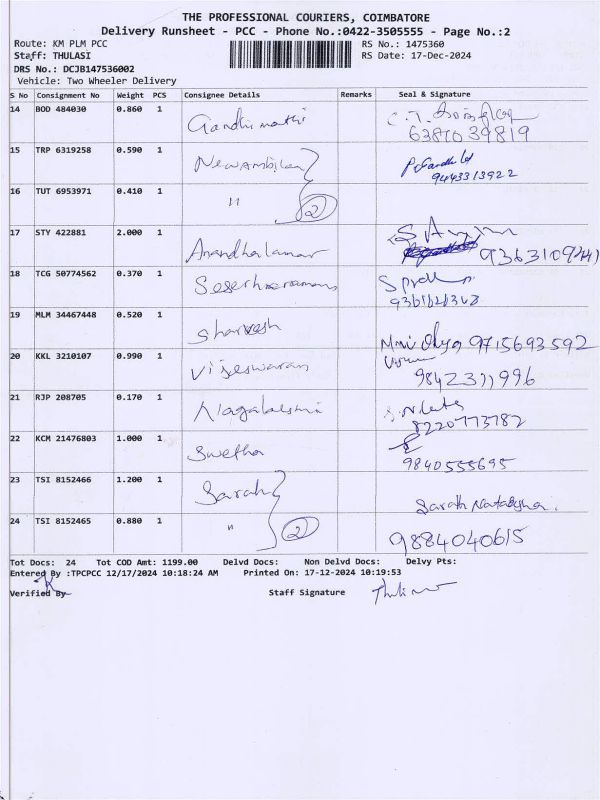 THE PROFESSIONAL COURIERS, COIMBATORE
Delivery Runsheet - PCC - Phone No.:0422-3505555 - Page No.:2
Route: KM PLM PCC RS No.: 1475360
Staff: THULASI RS Date: 17-Dec-2024
DRS No.: DCJB147536002
Vehicle: Two Wheeler Delivery
S No Consignment No Weight PCS Consignee Details Remarks Seal & Signature
14 BOD 484030 0.860 1 Gandhimathi
15 TRP 6319258 0.590 1 9443313922
16 TUT 6953971 0.410 1 " 2
17 STY 422881 2.000 1 Anandhakumar
18 TCG 50774562 0.370 1
19 MLM 34467448 0.520 1 Sharvesh 9715693592
20 KKL 3210107 0.990 1 Vijeswaran
21 RJP 208705 0.170 1 Nagalakshmi 8220773782
22 KCM 21476803 1.000 1 Swetha 9840555695
23 TSI 8152466 1.200 1 Sarath Sarath
24 TSI 8152465 0.880 1 " 2 9884040615
Tot Docs: 24 Tot COD Amt: 1199.00 Delvd Docs: Non Delvd Docs: Delvy Pts:
Entered By :TPCPCC 12/17/2024 10:18:24 AM Printed On: 17-12-2024 10:19:53
Verified By Staff Signature